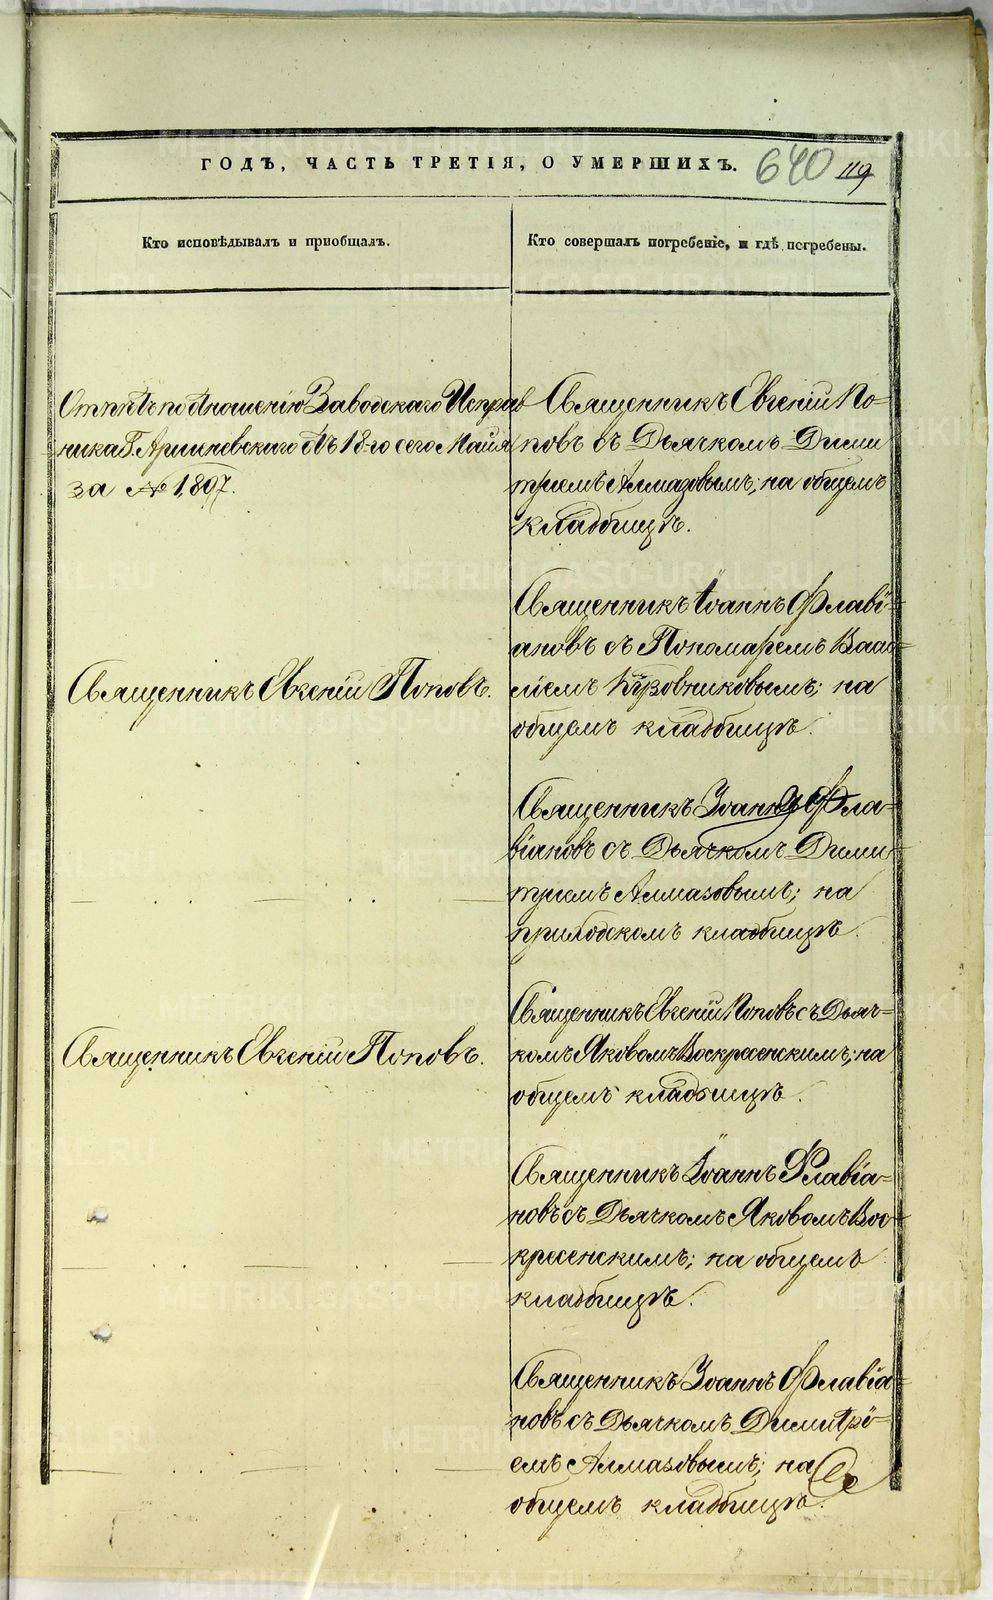 ГОДЪ, ЧАСТЬ ТРЕТІЯ, О УМЕРШИХЪ. 640 119
Кто исповѣдывалъ и пріобщалъ.
Кто совершалъ погребеніе, и гдѣ погребены.
Отпѣтъ по отношенію Заводскаго Исправ
ника Г. отъ 18-го сего Майя
за № 1,807.
Священникъ Евгеній По-
повъ съ Дьячкомъ Дими
тріемъ Алмазовымъ; на общемъ
кладбищѣ.
Священникъ Евгеній Поповъ.
Священникъ Іоаннъ Флаві-
ановъ съ Пономаремъ Васи-
ліемъ Кузовниковымъ; на
общемъ кладбищѣ.
Священникъ Іоаннъ Фла-
віановъ съ Дьячкомъ Дими-
тріемъ Алмазовымъ; на
приходскомъ кладбищѣ.
Священникъ Евгеній Поповъ.
Священникъ Евгеній Поповъ съ Дьяч-
комъ Яковомъ Воскресенскимъ; на
общемъ кладбищѣ.
Священникъ Іоаннъ Флавіа-
новъ съ Дьячкомъ Яковомъ Вос-
кресенскимъ; на общемъ
кладбищѣ.
Священникъ Іоаннъ Флавіа-
новъ съ Дьячкомъ Димитрі-
емъ Алмазовымъ; на
общемъ кладбищѣ.
METRIKI.GASO-URAL.RU